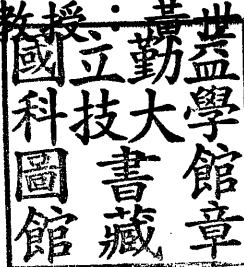 教授：
國立勤益
科技大學
圖書館
館藏章